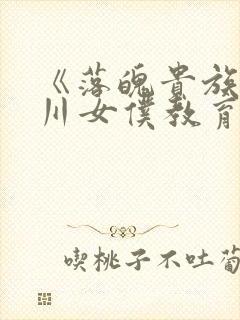 《落魄贵族
川女僕教育
喫桃子不吐葡